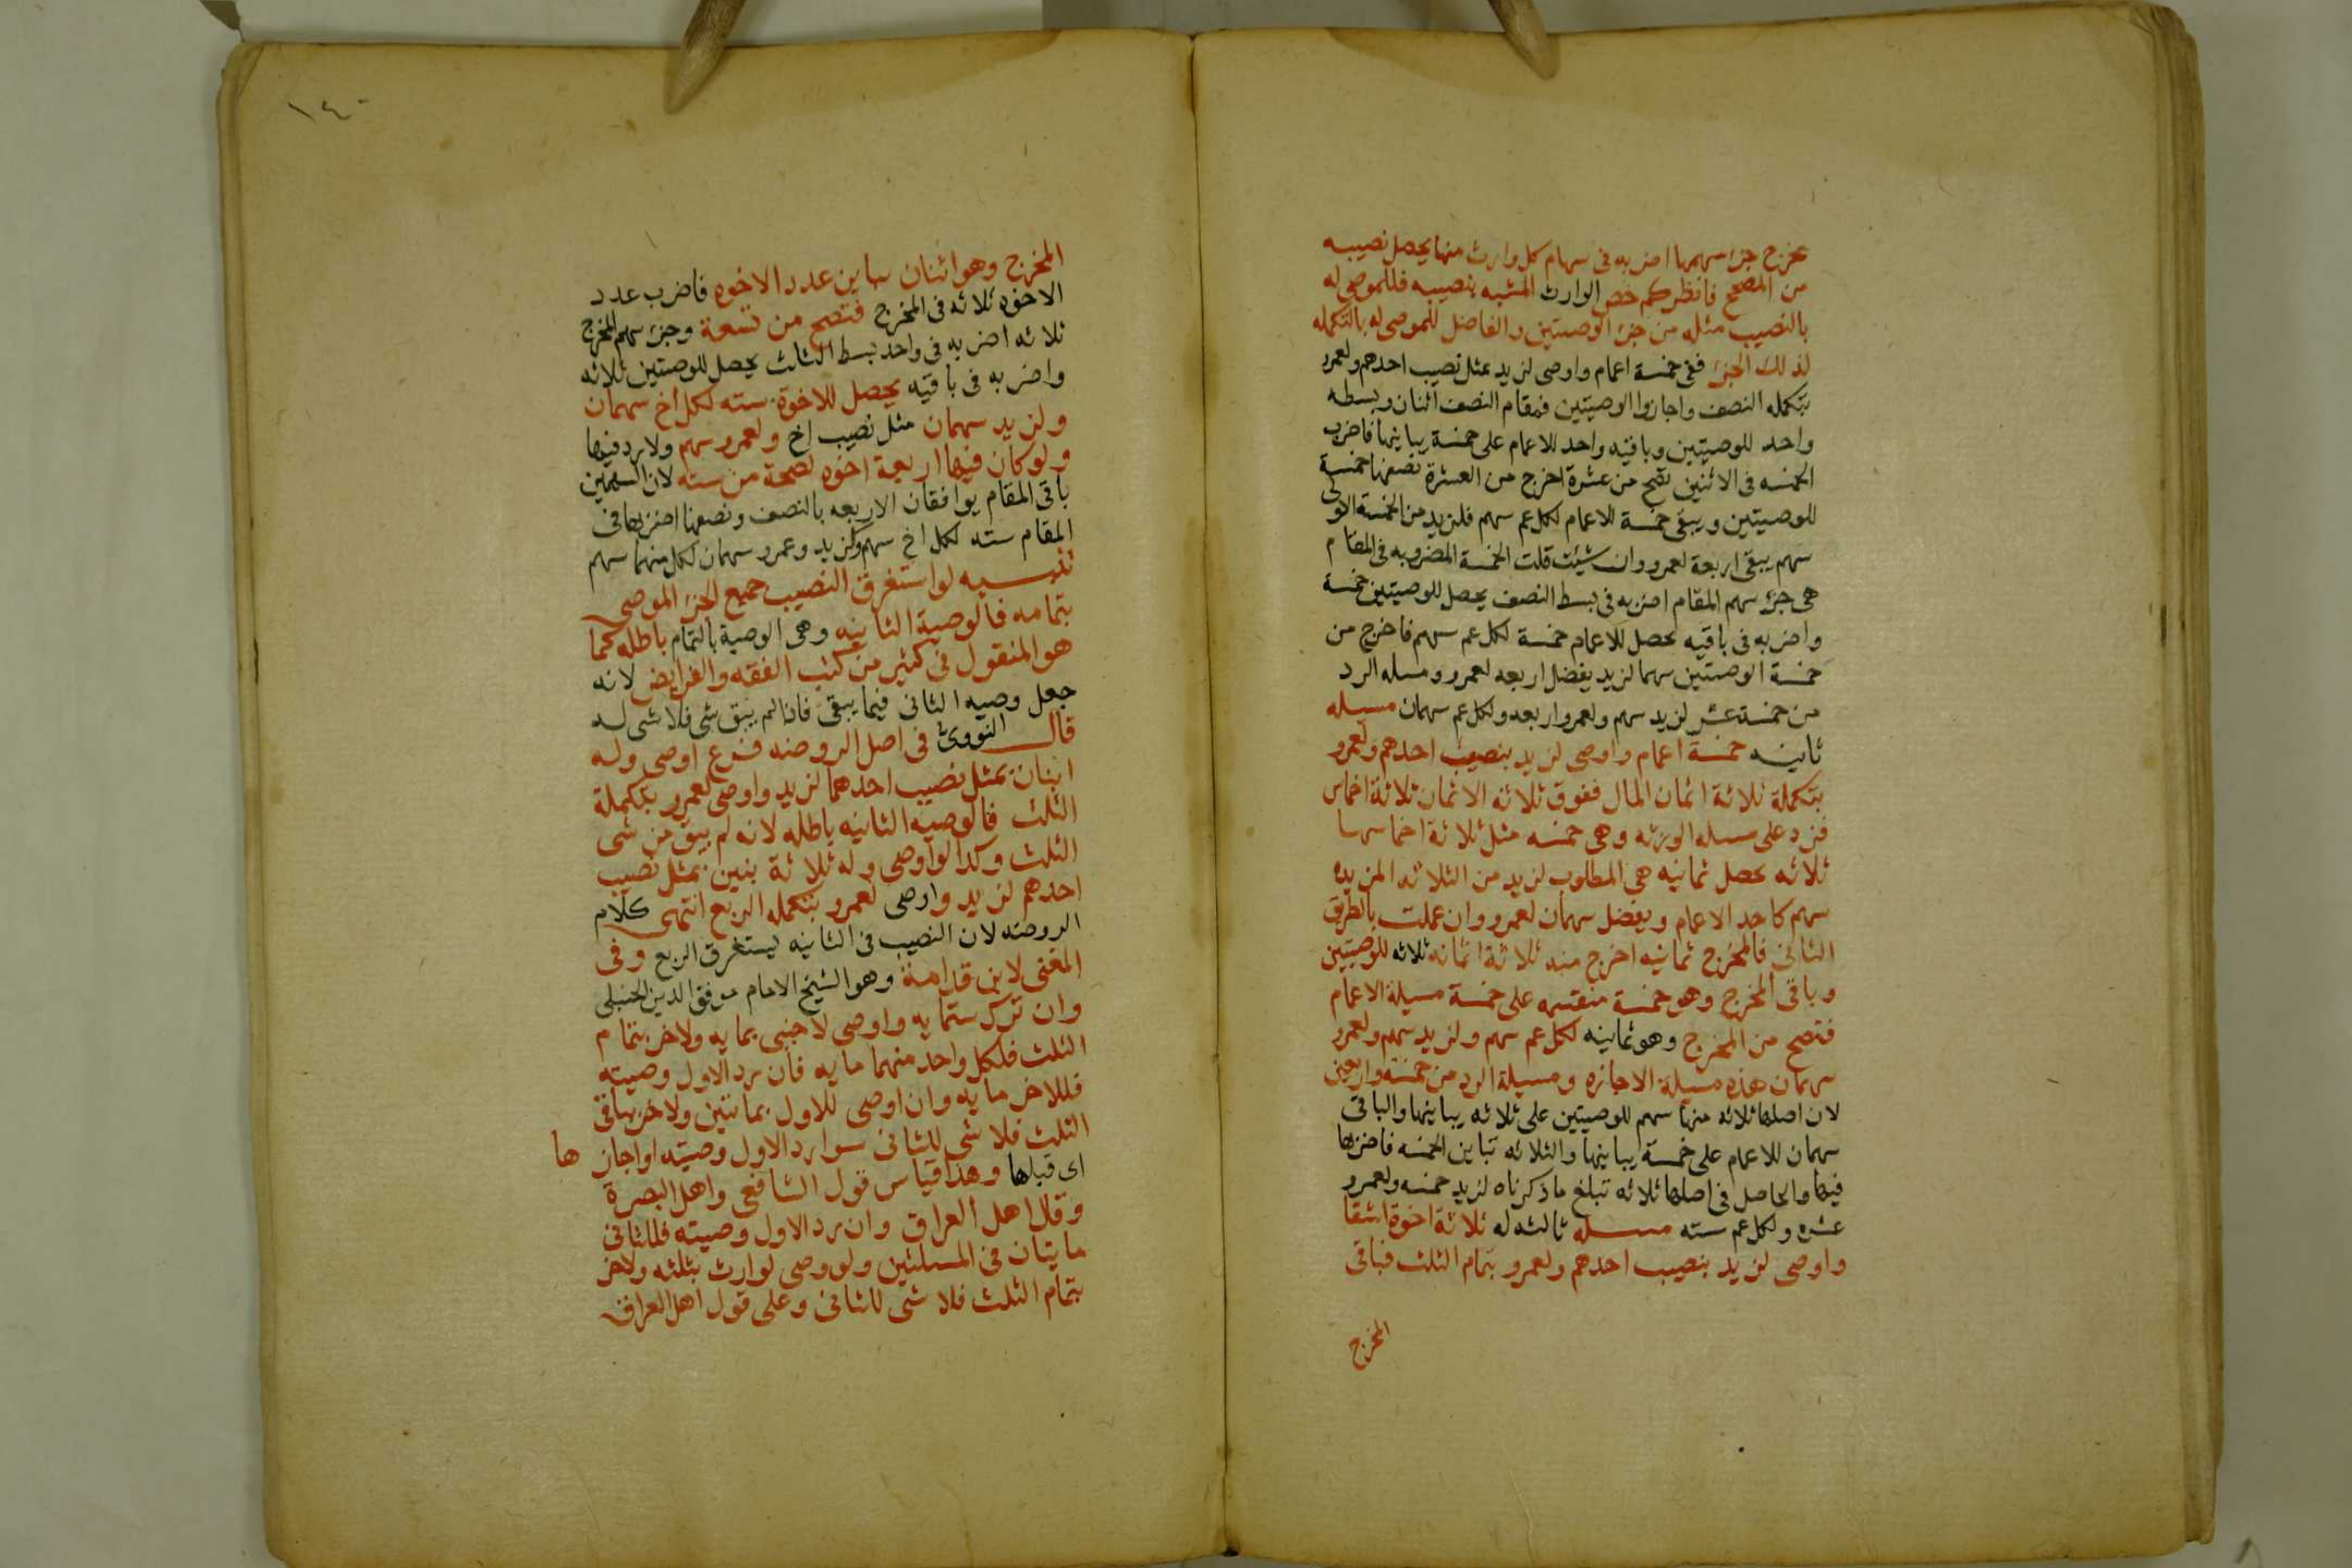 يخرج جزء سهمها اضربه فى سهام كل وارث منها يحصل نصيبه
من المصحح فانظر كم خص الوارث المشبه بنصيبه فللموصى له
بالنصيب مثله من جزء الوصيتين والفاضل للموصى له بالتكمله
لذلك الجزء ففى خمسة اعمام واوصى لزيد بمثل نصيب احدهم ولعمرو
بتكمله النصف واجازوا الوصيتين فمقام النصف اثنان وبسطه
واحد للوصيتين وباقيه واحد للاعمام على خمسة يباينها فاضرب
الخمسه فى الاثنين تصح من عشرة اخرج من العشرة نصفها خمسة
للوصيتين ويبقى خمسة للاعمام لكل عم سهم فلزيد من الخمسة الاولى
سهم يبقى اربعة لعمرو وان شيئت قلت الخمسة المضروبه فى المقام
هى جزء سهم المقام اضربه فى بسط النصف يحصل للوصيتين خمسة
واضربه فى باقيه يحصل للاعمام خمسة لكل عم سهم فاخرج من
خمسة الوصيتين سهما لزيد يفضل اربعه لعمرو ومسله الرد
من خمسة عشر لزيد سهم ولعمرو اربعه ولكل عم سهمان مسيله
ثانيه خمسة اعمام واوصى لزيد بنصيب احدهم ولعمرو
بتكملة ثلاثة اثمان المال ففوق ثلاثه الاثمان ثلاثة اخماس
فزد على مسله الورثه وهى خمسه مثل ثلاثة اخماسها
ثلاثه يحصل ثمانيه هى المطلوب لزيد من الثلاثه المزيده
سهم كاحد الاعمام ويفضل سهمان لعمرو وان عملت بالطريق
الثانى فالمخرج ثمانيه اخرج منه ثلاثة اثمانه ثلاثه للوصيتين
وباقى المخرج وهو خمسة منقسمه على خمسة مسيلة الاعمام
فتصح من المخرج وهو ثمانيه لكل عم سهم ولزيد سهم ولعمرو
سهمان هذه مسيلة الاجازه ومسيلة الرد من خمسة واربعين
لان اصلها ثلاثه منها سهم للوصيتين على ثلاثه يباينها والباقى
سهمان للاعمام على خمسة يباينها والثلاثه تباين الخمسه فاضربها
فيها والحاصل فى اصلها ثلاثه تبلغ ما ذكرناه لزيد خمسه ولعمرو
عشره ولكل عم سته مسله ثالثه له ثلاثة اخوة اشقا
واوصى لزيد بنصيب احدهم ولعمرو بتمام الثلث فباقى
المخرج
١٤٠
المخرج وهو اثنان يباين عدد الاخوه فاضرب عدد
الاخوه ثلاثه فى المخرج فتصح من تسعة وجزء سهم المخرج
ثلاثه اضربه فى واحد بسط الثلث يحصل للوصيتين ثلاثه
واضربه فى باقيه يحصل للاخوة سته لكل اخ سهمان
ولزيد سهمان مثل نصيب اخ ولعمرو سهم ولا رد فيها
ولو كان فيها اربعة اخوه لصحة من سته لان السهمين
باقى المقام يوافقان الاربعه بالنصف ونصفها اضربها فى
المقام سته لكل اخ سهم ولزيد وعمرو سهمان لكل منهما سهم
تنبيه لو استغرق النصيب جميع الجزء الموصى
بتمامه فالوصية الثانيه وهى الوصية بالتمام باطله كما
هو المنقول فى كثير من كتب الفقه والفرايض لانه
جعل وصيه الثانى فيما يبقى فاذا لم يبق شى فلا شى له
قال النووى فى اصل الروضه فرع اوصى وله
ابنان بمثل نصيب احدهما لزيد واوصى لعمرو بتكملة
الثلث فالوصيه الثانيه باطله لانه لم يبق من شى
الثلث وكذا لو اوصى وله ثلاثة بنين بمثل نصيب
احدهم لزيد واوصى لعمرو بتكمله الربع انتهى كلام
الروضه لان النصيب فى الثانيه يستغرق الربع وفى
المغنى لابن قدامة وهو الشيخ الامام موفق الدين الحنبلى
وان ترك ستمايه واوصى لاجنبى بمايه ولاخر بتمام
الثلث فلكل واحد منهما مايه فان رد الاول وصيته
فللاخر مايه وان اوصى للاول بمائتين ولاخر بباقى
الثلث فلا شى للثانى سوا رد الاول وصيته او اجازها
اى قبلها وهذا قياس قول الشافعى واهل البصرة
وقال اهل العراق وان رد الاول وصيته فللثانى
مايتان فى المسلتين ولو وصى لوارث بثلثه ولاخر
بتمام الثلث فلا شى للثانى وعلى قول اهل العراق